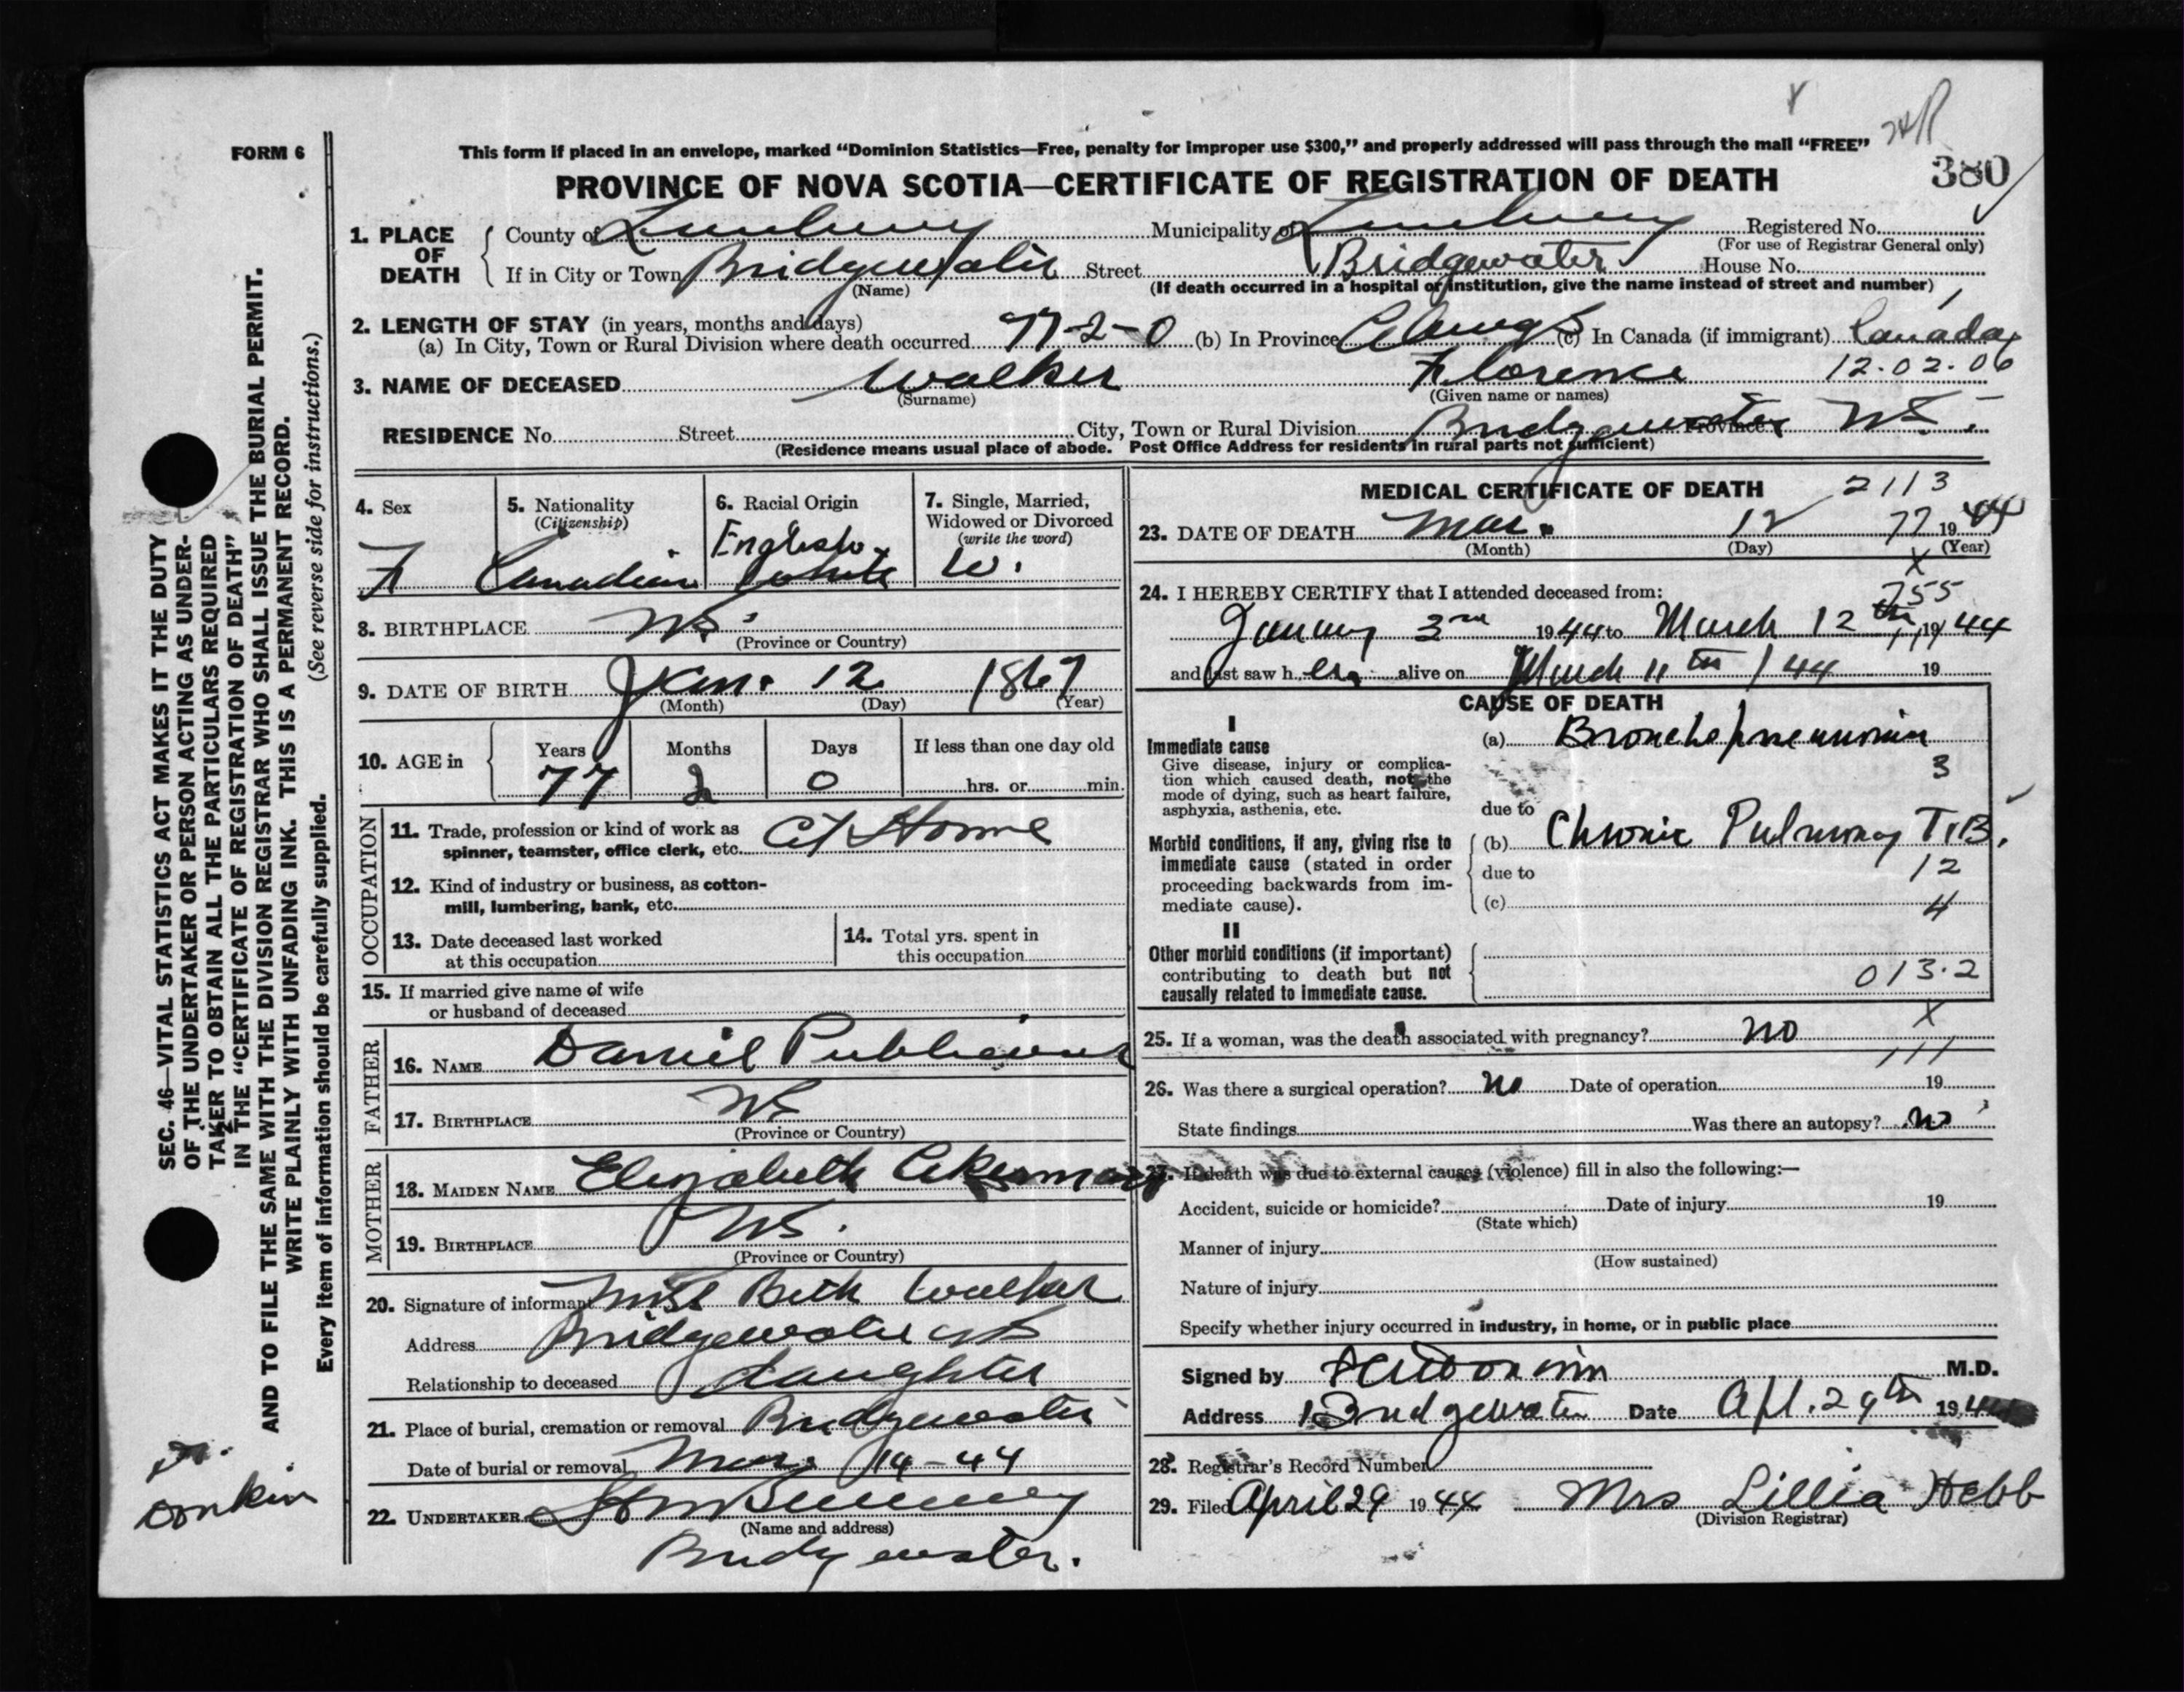 FORM 6
This form if placed in an envelope, marked “Dominion Statistics—Free, penalty for improper use $300,” and properly addressed will pass through the mail “FREE”
PROVINCE OF NOVA SCOTIA—CERTIFICATE OF REGISTRATION OF DEATH
380
1. PLACE OF DEATH
County of Lunenburg Municipality of Lunenburg Registered No.
(For use of Registrar General only)
If in City or Town Bridgewater Street Bridgewater House No.
(Name) (If death occurred in a hospital or institution, give the name instead of street and number)
2. LENGTH OF STAY (in years, months and days)
(a) In City, Town or Rural Division where death occurred 77-2-0 (b) In Province Always (c) In Canada (if immigrant) Canada
3. NAME OF DECEASED Walker Florence 12.02.06
(Surname) (Given name or names)
RESIDENCE No. Street City, Town or Rural Division Bridgewater Province NS.
(Residence means usual place of abode. Post Office Address for residents in rural parts not sufficient)
4. Sex
F
5. Nationality
(Citizenship)
Canadian
6. Racial Origin
English
White
7. Single, Married,
Widowed or Divorced
(write the word)
W.
8. BIRTHPLACE NS.
(Province or Country)
9. DATE OF BIRTH Jan. 12 1867
(Month) (Day) (Year)
10. AGE in Years Months Days If less than one day old
77 2 0 hrs. or min.
OCCUPATION
11. Trade, profession or kind of work as
spinner, teamster, office clerk, etc. At Home
12. Kind of industry or business, as cotton-
mill, lumbering, bank, etc.
13. Date deceased last worked
at this occupation
14. Total yrs. spent in
this occupation
15. If married give name of wife
or husband of deceased
FATHER
16. NAME Daniel Publicover
17. BIRTHPLACE NS
(Province or Country)
MOTHER
18. MAIDEN NAME Elizabeth Akerman
19. BIRTHPLACE NS.
(Province or Country)
20. Signature of informant Miss Beth Walker
Address Bridgewater NS
Relationship to deceased daughter
21. Place of burial, cremation or removal Bridgewater
Date of burial or removal Mar. 14-44
22. UNDERTAKER
(Name and address)
Bridgewater.
MEDICAL CERTIFICATE OF DEATH
2113
23. DATE OF DEATH Mar. 12 77 1944
(Month) (Day) (Year)
X
24. I HEREBY CERTIFY that I attended deceased from:
755
January 3rd 1944 to March 12th 1944
and last saw her alive on March 11th 144 19
CAUSE OF DEATH
I
Immediate cause
Give disease, injury or complica-
tion which caused death, not the
mode of dying, such as heart failure,
asphyxia, asthenia, etc.
(a) Bronchopneumonia
3
due to
Morbid conditions, if any, giving rise to
immediate cause (stated in order
proceeding backwards from im-
mediate cause).
(b) Chronic Pulmonary T.B.
due to 12
(c) 4
II
Other morbid conditions (if important)
contributing to death but not
causally related to immediate cause.
013.2
X
25. If a woman, was the death associated with pregnancy? no
111
26. Was there a surgical operation? no Date of operation 19
State findings Was there an autopsy? no
27. If death was due to external causes (violence) fill in also the following:—
Accident, suicide or homicide? Date of injury 19
(State which)
Manner of injury
(How sustained)
Nature of injury
Specify whether injury occurred in industry, in home, or in public place
Signed by M.D.
Address Bridgewater Date Apl. 29th 1944
28. Registrar's Record Number
29. Filed April 29 1944 Mrs Lillia Hebb
(Division Registrar)
SEC. 46—VITAL STATISTICS ACT MAKES IT THE DUTY
OF THE UNDERTAKER OR PERSON ACTING AS UNDER-
TAKER TO OBTAIN ALL THE PARTICULARS REQUIRED
IN THE “CERTIFICATE OF REGISTRATION OF DEATH”
AND TO FILE THE SAME WITH THE DIVISION REGISTRAR WHO SHALL ISSUE THE BURIAL PERMIT.
WRITE PLAINLY WITH UNFADING INK. THIS IS A PERMANENT RECORD.
Every item of information should be carefully supplied. (See reverse side for instructions.)
Dr.
Donkin